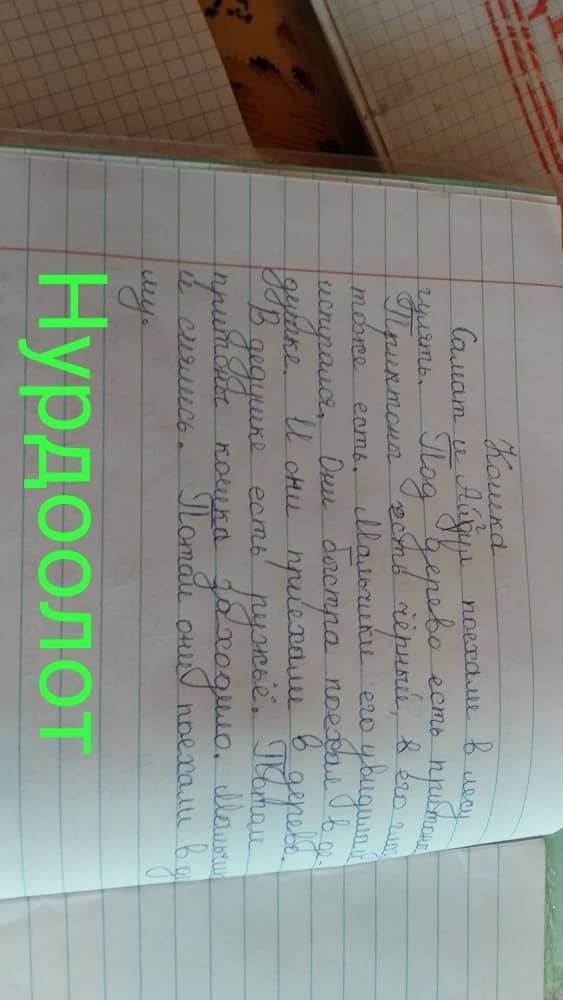 Кошка
Самат и Айгул поехали в лесу
гулять. Под дерево есть притона
Приктоны есть чёрный, в его глаз
тоже есть. Мальчики его увидилай
испуралсе. Они быстра поехал в де-
душке. И они приехали в дерево.
В дедушке есть ружьё. Потом
притоны кошка заходило. Мальчик
и смялись. Потом они поехали в до
му.
Нурдоолот